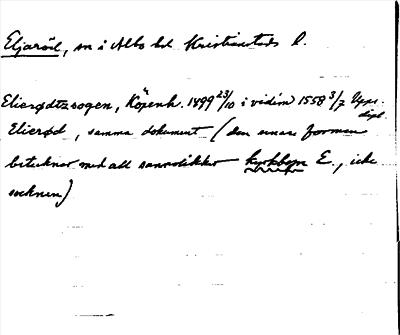 Eljaröd, sn i Albo hd Kristianstads l.
Elierødtzsogen, Köpenh. 1499 23/10 i vidim 1558 3/7 Upps. dipl.
Elierød, samma dokument (den senare formen
betecknar med all sannolikhet kyrkbyn E., icke
socknen)